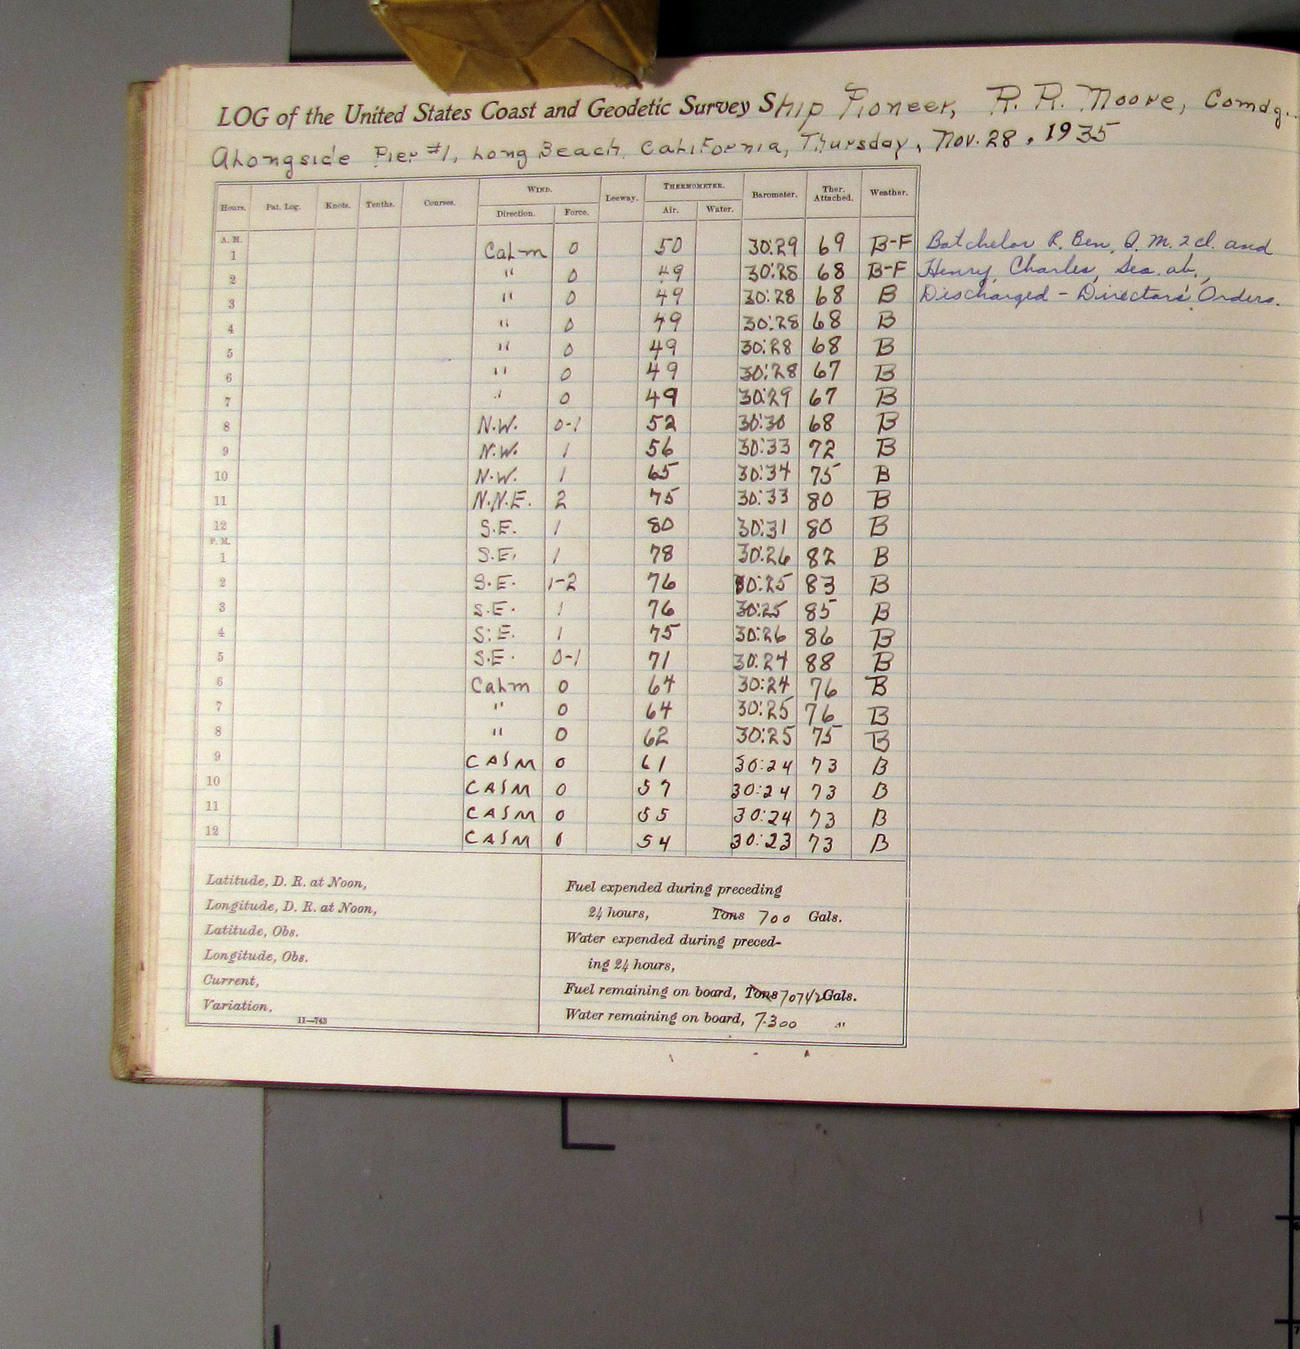 LOG of the United States Coast and Geodetic Survey Ship Pioneer, R. R. Moore, Comdg..
Alongside Pier #1, Long Beach, California, Thursday, Nov. 28, 1935
Hours. Pat. Log. Knots. Tenths. Courses. WIND. Direction. Force. Leeway. THERMOMETER. Air. Water. Barometer. Ther. Attached. Weather.
A. M.
1 Calm 0 50 30:29 69 B-F Batchelor R. Ben, Q. M. 2 cl. and
2 " 0 49 30:28 68 B-F Henry, Charles, Sea. ab.,
3 " 0 49 30:28 68 B Discharged - Directors' Orders.
4 " 0 49 30:28 68 B
5 " 0 49 30:28 68 B
6 " 0 49 30:28 67 B
7 " 0 49 30:29 67 B
8 N.W. 0-1 52 30:30 68 B
9 N.W. 1 56 30:33 72 B
10 N.W. 1 65 30:34 75 B
11 N.N.E. 2 75 30:33 80 B
12 S.E. 1 80 30:31 80 B
P. M.
1 S.E. 1 78 30:26 82 B
2 S.E. 1-2 76 30:25 83 B
3 S.E. 1 76 30:25 85 B
4 S.E. 1 75 30:26 86 B
5 S.E. 0-1 71 30:24 88 B
6 Calm 0 64 30:24 76 B
7 " 0 64 30:25 76 B
8 " 0 62 30:25 75 B
9 CAlM 0 61 30:24 73 B
10 CAlM 0 57 30:24 73 B
11 CAlM 0 55 30:24 73 B
12 CAlM 0 54 30:23 73 B
Latitude, D. R. at Noon,
Longitude, D. R. at Noon,
Latitude, Obs.
Longitude, Obs.
Current,
Variation,
11—743
Fuel expended during preceding
24 hours, Tons 700 Gals.
Water expended during preced-
ing 24 hours,
Fuel remaining on board, Tons 70742 Gals.
Water remaining on board, 7300 "